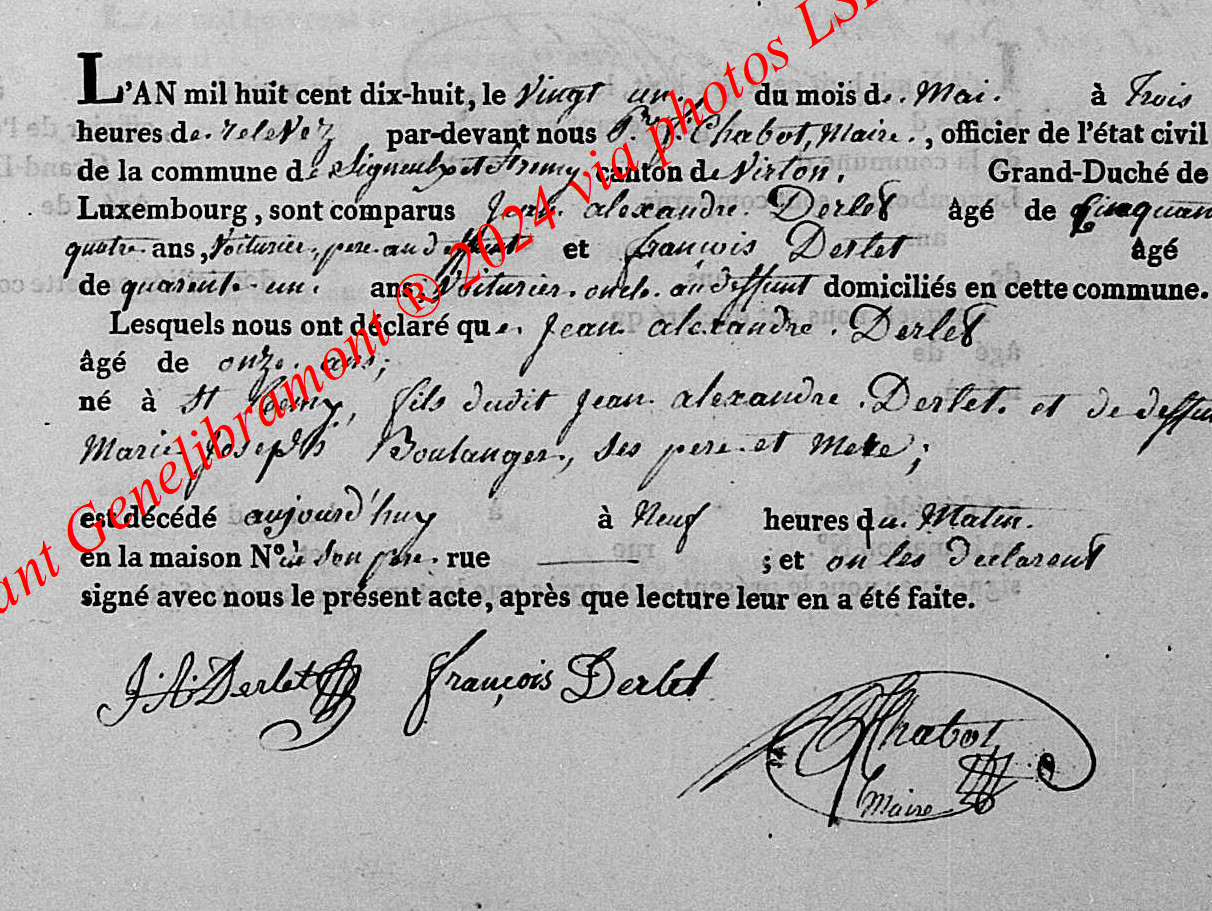 L'AN mil huit cent dix-huit, le vingt un. du mois de. Mai. à Trois
heures de. relevez par-devant nous Chabot, Maire., officier de l'état civil
de la commune de canton de Virton. Grand-Duché de
Luxembourg, sont comparus Jean. alexandre. Derlet âgé de Cinquan
quatre ans, Voiturier, pere au deffunt et françois Derlet âgé
de quarente. un. ans, Voiturier. oncle. au deffunt domiciliés en cette commune.
Lesquels nous ont déclaré que. Jean. alexandre. Derlet
âgé de onze. ans;
né à St Remy, fils dudit Jean alexandre. Derlet. et de deffun
Marie Joseph Boulanger, ses pere et Mere;
est décédé aujourd'huy à Neuf heures du. Matin.
en la maison N° de son pere. rue ; et ont les declarent
signé avec nous le présent acte, après que lecture leur en a été faite.
J: A: Derlet françois Derlet
Chabot
Maire
ant Genelibramont ® 2024 via photos LS